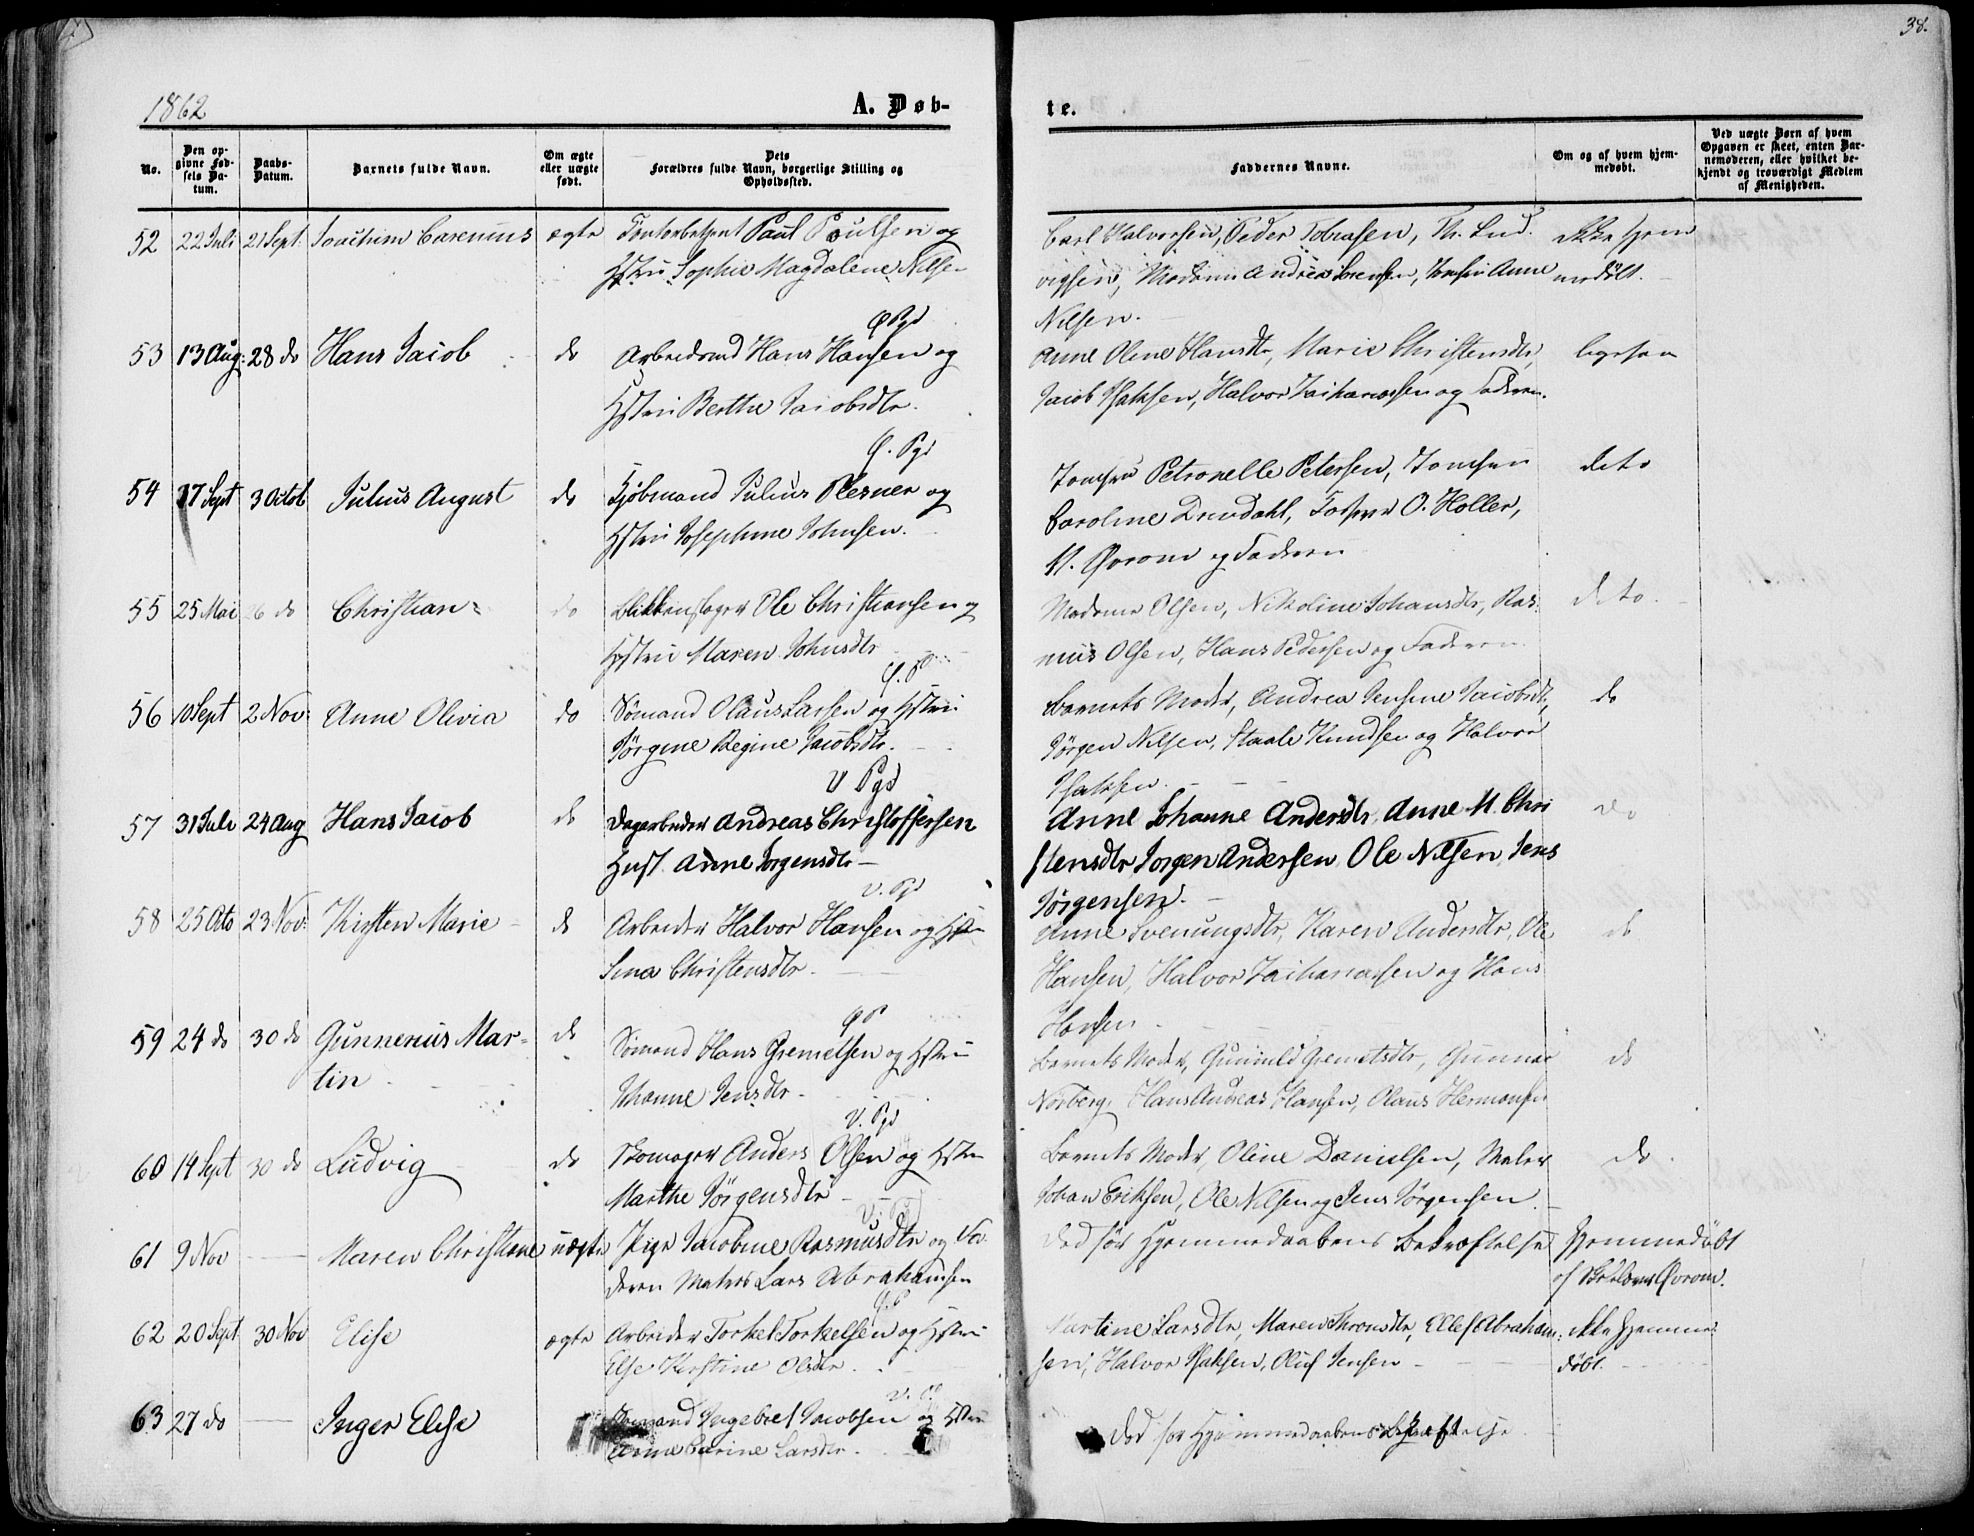 38.
1862
A. Døb-
te.
No.
Den op-
givne Fød-
sels Da-
tum.
Daabs-
Datum.
Barnets fulde Navn.
Om ægte
eller uægte
født.
Dets
Forældres fulde Navn, borgerlige Stilling og
Opholdssted.
Faddernes Navne.
Om og af hvem hjem-
medøbt.
Ved uægte Børn af hvem
Opgaven er skeet, enten Bar-
nemoderen, eller hvilket be-
kjendt og troværdigt Medlem
af Menigheden.
52 22 Juli 21 Sept. Joachim Carenius ægte Paul Poulsen og
Hstru Sophie Magdalene Nilsen
Carl Halvorsen, Peder Tobiasen, Th. Lud-
vigsen, Madame Andrea Sørensen, Anne
Nilsen.
ikke hjem
medøbt.
53 13 Aug: 28 do Hans Jacob do Arbeidsmd Hans Hansen og
Hstru Berthe Jacobsdtr.
Anne Olene Hansdtr, Marie Christensdtr,
Jacob Isaksen, Halvor Zachariassen og Faderen.
ligesaa
54 17 Sept 3 Octob Julius August do Kjøbmand Julius Plesner og
Hstru Josephine Johnsen.
Jomfru Petronelle Petersen, Jomfru
Caroline Drevdahl, O. Holler,
N. Øvrom og Faderen
deto
55 25 Mai 26 do Christian do Blikkenslager Ole Christiansen og
Hstru Maren Johnsdtr
Madame Olsen, Nikoline Johansdtr, Ras-
mus Olsen, Hans Pedersen og Faderen.
deto.
56 10 Sept 2 Nov: Anne Olivia do Sömand Olaus Larsen og Hstru
Jörgine Regine Jacobsdtr.
Barnets Moder, Andrea Jensine Jacobsdtr,
Jörgen Nilsen, Staale Knudsen og Halvor
Isaksen.
do
V Pgd
57 31 Juli 24 Aug Hans Jacob do Dagarbeider Andreas Christoffersen
Hust. Anne Jorgensdtr -
Anne Johanne Andersdtr, Anne M. Chri
stensdtr Jorgen Andersen Ole Nilsen Jens
Jörgensen.
do
V. Pgd
58 25 Oto 23 Nov: Kirsten Marie do Arbeider Halvor Hansen og Hstru
Sina Christensdtr.
Anne Svenungsdtr, Karen Andersdtr, Ole
Hansen, Halvor Zachariassen og Hans
Hansen
do
59 24 do 30 do Gunnerius Mar-
tin
do Sömand Hans Gremetsen og Hstru
Johanne Jensdtr.
Barnets Moder, Gunild Gremetsdtr, Gunnar
Norberg, Hans Andreas Hansen, Olaus Hermansen
do
V. Pgd
60 14 Sept 30 do Ludvig do Skomager Anders Olsen og Hstru
Marthe Jörgensdtr
Barnets Moder, Oline Danielsen, Maler
Johan Eriksen, Ole Nilsen og Jens Jörgensen.
do.
61 9 Nov Maren Christiane uægte Pige Jacobine Rasmusdtr og Fa-
deren Matros Lars Abrahamsen
Död för Hjemmedaabens Bekræftelse
hjemmedøbt
af Øvrom.
62 20 Sept 30 Nov Elise ægte Arbeider Torkel Torkelsen og Hstru
Else Kirstine Olsdtr.
Martine Larsdtr, Maren Thronsdtr, Ellef Abraham-
sen, Halvor Isaksen, Oluf Jensen -
ikke hjemme-
døbt.
63 27 do Inger Elise Sömand Ingebret Jacobsen og Hstru
Anne Carine Larsdtr.
Död för Hjemmedaabens Bekræftelse